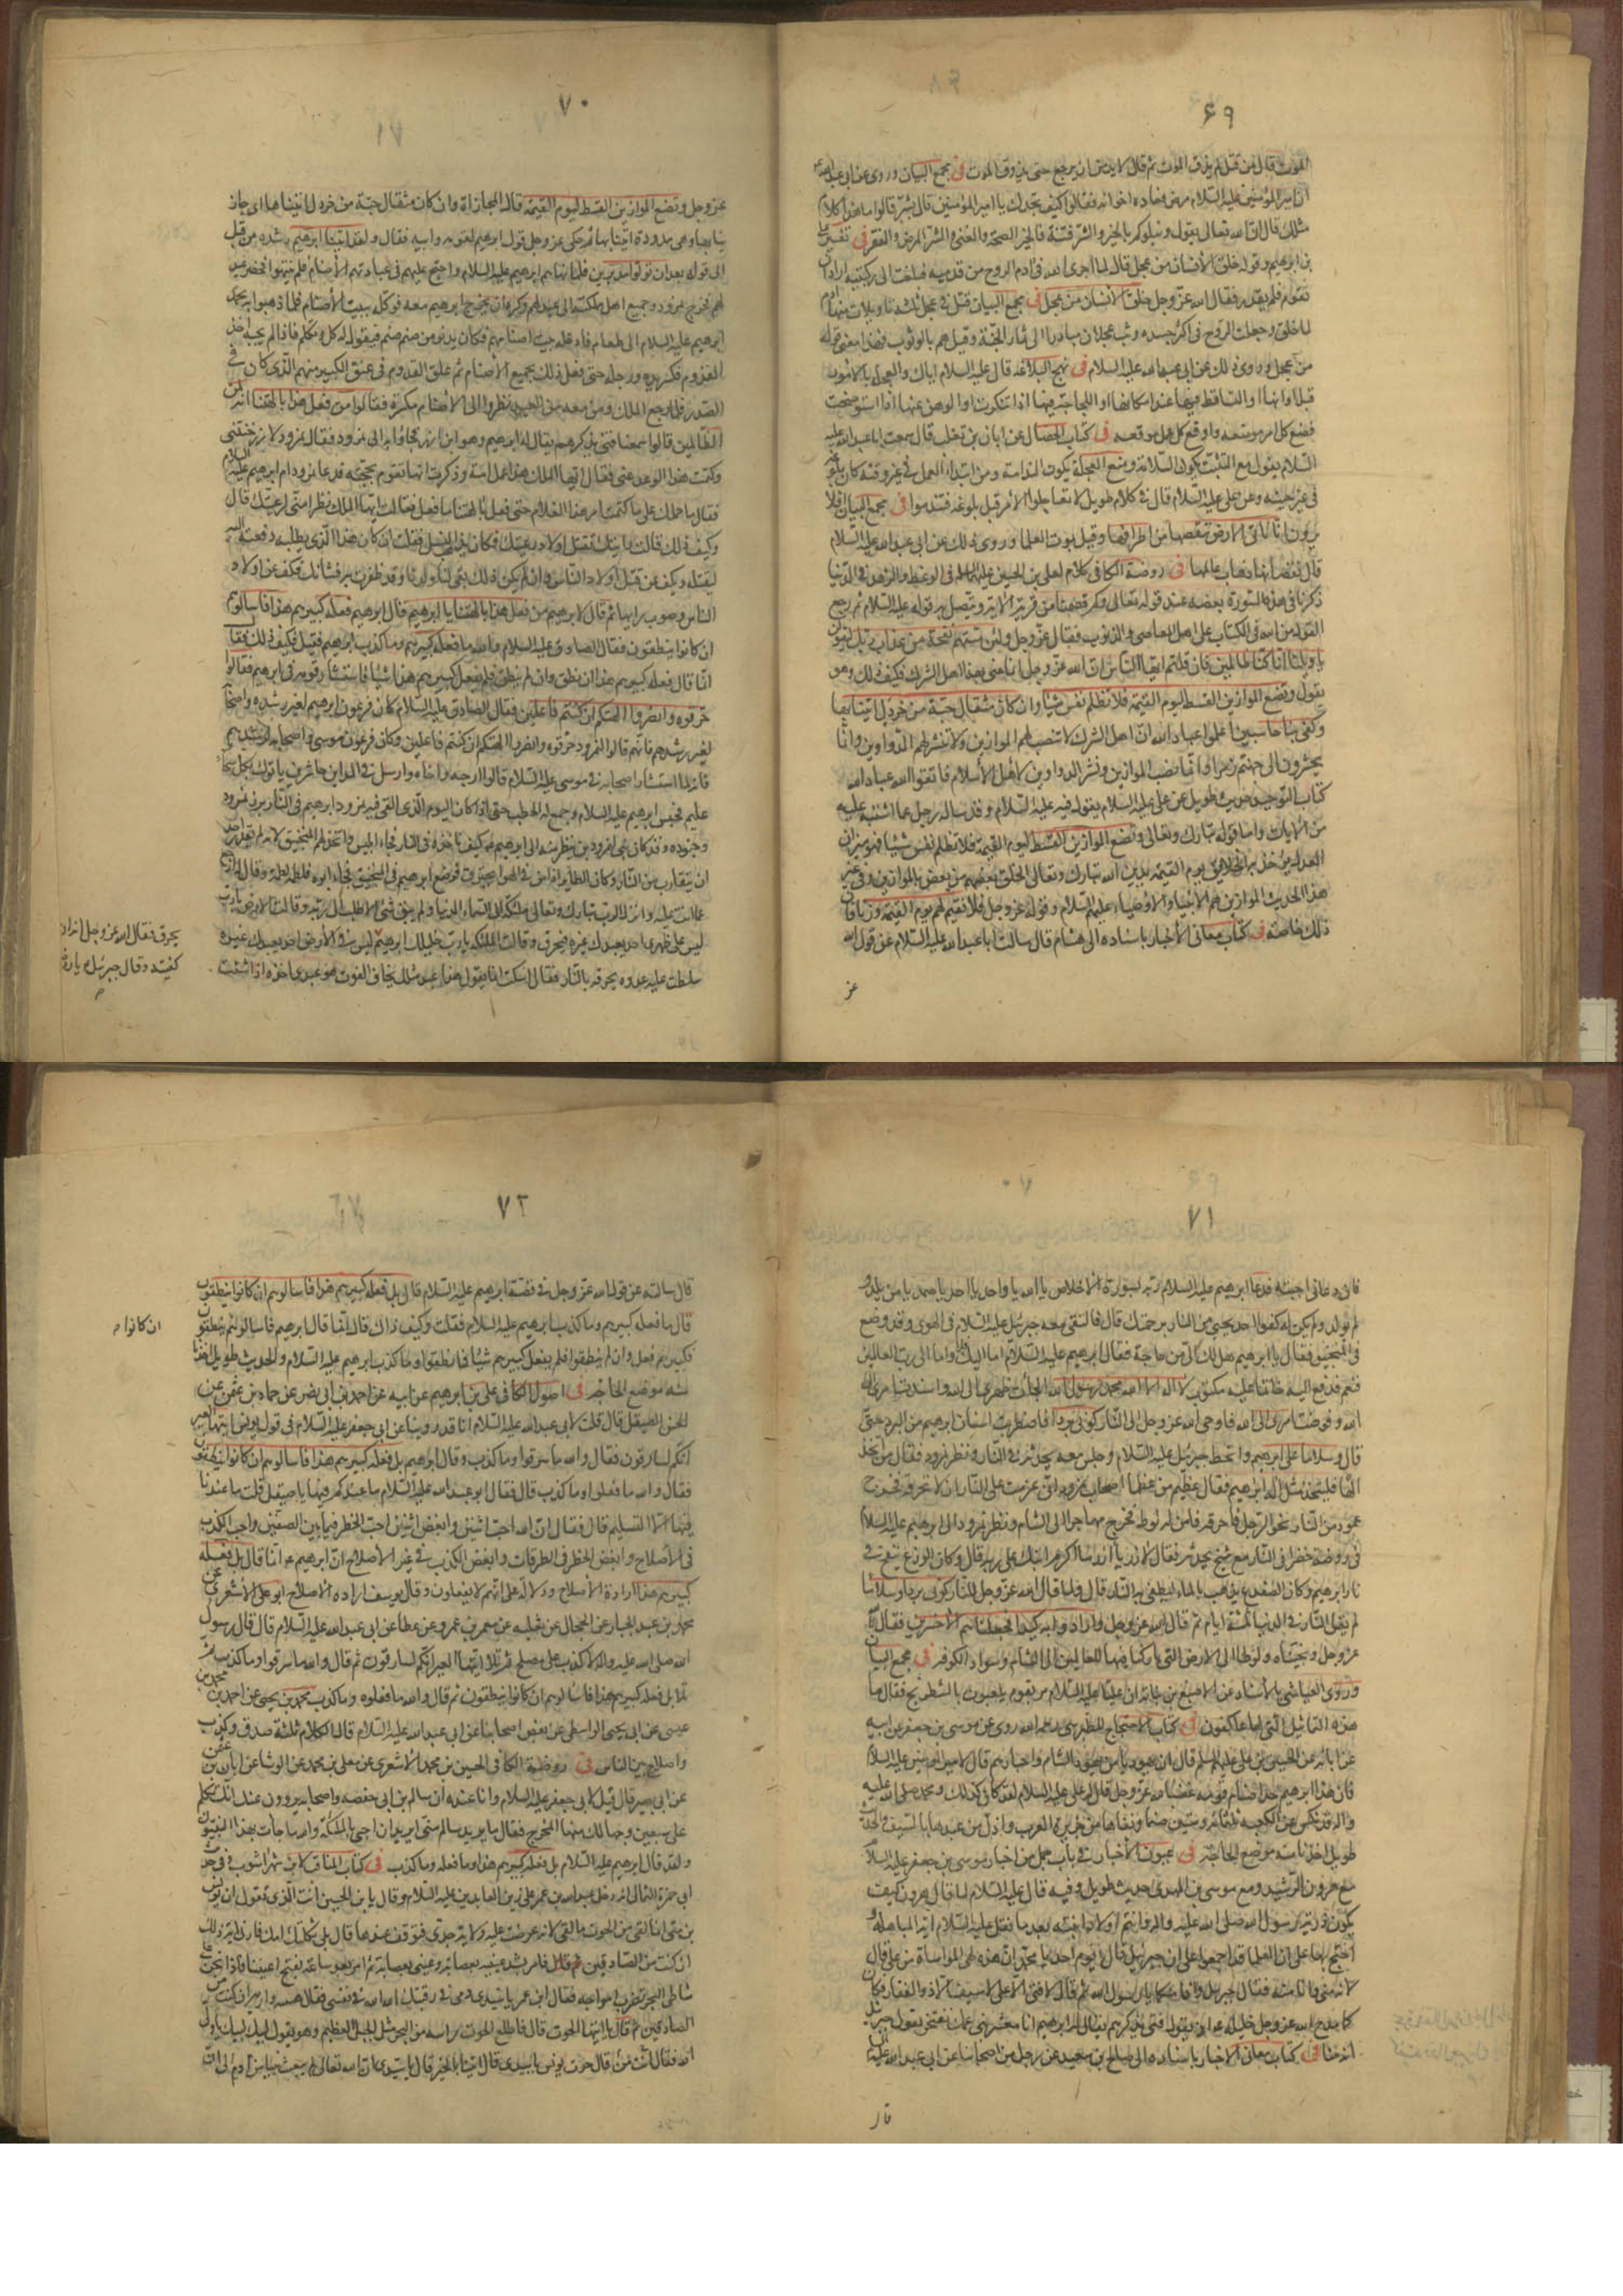 ۶۹
الموت قال من قتل لم يذق الموت ثم قال لا بد من ان يرجع حتى يذوق الموت فى مجمع البيان وروى عن ابى عبدالله ع
ان امير المؤمنين عليه السلام مرض فعاده اخوانه فقالوا كيف نجدك يا امير المؤمنين قال بشر قالوا ما هذا كلام
مثلك قال ان الله تعالى يقول ونبلوكم بالخير والشر فتنة فالخير الصحة والغنى والشر المرض والفقر فى تفسير على
بن ابرهيم وقوله خلق الانسان من عجل قال لما اجرى الله فى ادم الروح من قدميه فبلغت الى ركبتيه اراد ان
يقوم فلم يقدر فقال الله عز وجل خلق الانسان من عجل فى مجمع البيان قيل فى عجل ثلث تاويلات منها ان ادم
لما خلق وجعلت الروح فى اكثر جسده وثب عجلان مبادرا الى ثمار الجنة وقيل هم بالوثوب فهذا معنى قوله
من عجل وروى ذلك عن ابى عبدالله عليه السلام فى نهج البلاغه قال عليه السلام اياك والعجلة بالامور
قبل اوانها او التساقط فيها عند امكانها او اللجاجة فيها اذا تنكرت او الوهن عنها اذا استوضحت
فضع كل امر موضعه واوقع كل عمل موقعه فى كتاب الخصال عن ابان بن تغلب قال سمعت ابا عبدالله عليه
السلام يقول مع التثبت تكون السلامة ومع العجلة تكون الندامة ومن ابتدا العمل فى غير وقته كان بلوغه
فى غير حينه وعن على عليه السلام قال فى كلام طويل لا تعاجلوا الامر قبل بلوغه فتندموا فى مجمع البيان افلا
يرون انا ناتى الارض ننقصها من اطرافها وقيل بموت العلما وروى ذلك عن ابى عبدالله عليه السلام
قال نقصانها ذهاب عالمها فى روضة الكافى كلام لعلى بن الحسين عليهما السلم فى الوعظ والزهد فى الدنيا
ذكرنا فى هذه السورة بعضه عند قوله تعالى وكم قصمنا من قرية الاية ويتصل به قوله عليه السلام ثم رجع
القول من الله فى الكتاب على اهل المعاصى والذنوب فقال عز وجل ولئن مستهم نفحة من عذاب ربك ليقولن
يا ويلنا انا كنا ظالمين فان قلتم ايها الناس ان الله عز وجل انما عنى بهذا اهل الشرك فكيف ذلك وهو
يقول ونضع الموازين القسط ليوم القيمة فلا تظلم نفس شيئا وان كان مثقال حبة من خردل اتينا بها
وكفى بنا حاسبين اعلموا عباد الله ان اهل الشرك لا تنصب لهم الموازين ولا تنشر لهم الدواوين وانما
يحشرون الى جهنم زمرا وانما نصب الموازين ونشر الدواوين لاهل الاسلام فاتقوا الله عباد الله
كتاب التوحيد حديث طويل عن على عليه السلام يقول فيه عليه السلام وقد ساله رجل عما اشتبه عليه
من الايات واما قوله تبارك وتعالى ونضع الموازين القسط ليوم القيمة فلا تظلم نفس شيئا فهو ميزان
العدل يؤخذ به الخلايق يوم القيمة يدين الله تبارك وتعالى الخلق بعضهم من بعض بالموازين وفى غير
هذا الحديث الموازين هم الانبياء والاوصياء عليهم السلام وقوله عز وجل فلا نقيم لهم يوم القيمة وزنا فان
ذلك خاصة فى كتاب معانى الاخبار باسناده الى هشام قال سالت ابا عبدالله عليه السلام عن قول الله
عز
۷۰
عز وجل ونضع الموازين القسط ليوم القيمة قال المجازاة وان كان مثقال حبة من خردل اتينا بها اى جاز
ينا بها وهى ممدودة اتينا بها ثم حكى عز وجل قول ابرهيم لقومه وابيه فقال ولقد اتينا ابرهيم رشده من قبل
الى قوله بعد ان تولوا مدبرين فلما نهاهم ابرهيم عليه السلام واحتج عليهم فى عبادتهم الاصنام فلم ينتهوا فحضر عيد
لهم فخرج نمرود وجميع اهل مملكته الى عيد لهم وكره ان يخرج ابرهيم معه فوكله ببيت الاصنام فلما ذهبوا عمد
ابرهيم عليه السلام الى طعام فادخله بيت اصنامهم فكان يدنو من صنم صنم فيقول له كل وتكلم فاذا لم يجبه اخذ
القدوم فكسر يده ورجله حتى فعل ذلك بجميع الاصنام ثم علق القدوم فى عنق الكبير منهم الذى كان فى
الصدر فلما رجع الملك ومن معه من العيد نظروا الى الاصنام مكسرة فقالوا من فعل هذا بالهتنا انه لمن
الظالمين قالوا سمعنا فتى يذكرهم يقال له ابرهيم وهو ابن ازر فجاؤا به الى نمرود فقال نمرود لازر خنتنى
وكتمت هذا الولد عنى فقال ايها الملك هذا عمل امه وذكرت انها تقوم بحجته فدعا نمرود ام ابرهيم عليه السلام
فقال ما حملك على ما كتمت امر هذا الغلام حتى فعل بالهتنا ما فعل فقالت ايها الملك نظرا منى لرعيتك قال
وكيف ذلك قالت رايتك تقتل اولاد رعيتك فكان يذهب النسل فقلت ان كان هذا الذى يطلبه دفعته اليه
ليقتله ويكف عن قتل اولاد الناس وان لم يكن ذلك بقى لنا ولدنا وقد ظفرت به فشانك فكف عن اولاد
الناس وصوب رايها ثم قال لابرهيم من فعل هذا بالهتنا يا ابرهيم قال ابرهيم فعله كبيرهم هذا فاسالوهم
ان كانوا ينطقون فقال الصادق عليه السلام والله ما فعله كبيرهم وما كذب ابرهيم فقيل فكيف ذلك فقال
انما قال فعله كبيرهم هذا ان نطق وان لم ينطق فلم يفعل كبيرهم هذا شيئا فاستشار قومه فى ابرهيم فقالوا
حرقوه وانصروا الهتكم ان كنتم فاعلين فقال الصادق عليه السلام كان فرعون ابرهيم لغير رشده واصحابه
لغير رشدهم فانهم قالوا لنمرود حرقوه وانصروا الهتكم ان كنتم فاعلين وكان فرعون موسى واصحابه لرشدهم
فانه لما استشار اصحابه فى موسى عليه السلام قالوا ارجه واخاه وارسل فى المداين حاشرين ياتوك بكل سحار
عليم فحبس ابرهيم عليه السلام وجمع له الحطب حتى اذا كان اليوم الذى القى فيه نمرود ابرهيم فى النار برز نمرود
وجنوده وقد كان بنى لنمرود بناء ينظر منه الى ابرهيم كيف تاخذه النار فجاء ابليس واتخذ لهم المنجنيق لانه لم يقدر احد
ان يتقارب من النار وكان الطاير اذا مر فى الهوا يحترق فوضع ابرهيم فى المنجنيق فجاء ابوه فلطمه لطمة وقال له ارجع
عما انت عليه وانزل الرب تبارك وتعالى ملئكته الى السماء الدنيا ولم يبق شئ الا طلب الى ربه وقالت الارض يارب
ليس على ظهرى احد يعبدك غيره فيحرق وقالت الملئكة يارب خليلك ابرهيم ليس فى الارض احد يعبدك غيره
سلطت عليه عدوه يحرقه بالنار فقال اسكت انما يقول هذا عبد مثلك يخاف الفوت هو عبدى اخذه اذا شئت
يحرق فقال الله عز وجل انه ان دعانى
كفيته وقال جبرئيل يارب
۷۱
فان دعانى اجبته فدعا ابرهيم عليه السلام ربه بسورة الاخلاص يا الله يا واحد يا احد يا صمد يا من لم يلد و
لم يولد ولم يكن له كفوا احد نجنى من النار برحمتك قال فالتقى معه جبرئيل عليه السلام فى الهوى وقد وضع
فى المنجنيق فقال يا ابرهيم هل لك الى من حاجة فقال ابرهيم عليه السلام اما اليك فلا واما الى رب العالمين
فنعم فدفع اليه خاتما عليه مكتوب لا اله الا الله محمد رسول الله الجات ظهرى الى الله واسندت امرى الى
الله وفوضت امرى الى الله فاوحى الله عز وجل الى النار كونى بردا فاضطربت اسنان ابرهيم من البرد حتى
قال وسلاما على ابرهيم وانحط جبرئيل عليه السلام وجلس معه يحدثه فى النار ونظر نمرود فقال من اتخذ
الها فليتخذ مثل اله ابرهيم فقال عظيم من عظما اصحاب نمرود انى عزمت على النار ان لا تحرقه فخرج
عمود من النار نحو الرجل فاحرقه فامن له لوط فخرج مهاجرا الى الشام ونظر نمرود الى ابرهيم عليه السلام
فى روضة خضرا فى النار مع شيخ يحدثه فقال لازر يا ازر ما اكرم ابنك على ربه قال وكان الوزغ ينفخ فى
نار ابرهيم وكان الضفدع يذهب بالماء ليطفى به النار قال ولما قال الله عز وجل للنار كونى بردا وسلاما
لم تعمل النار فى الدنيا ثلثة ايام ثم قال الله عز وجل وارادوا به كيدا فجعلناهم الاخسرين فقال الله
عز وجل ونجيناه ولوطا الى الارض التى باركنا فيها للعالمين الى الشام وسواد الكوفة فى مجمع البيان
وروى العياشى بالاسناد عن الاصبغ بن نباتة ان عليا عليه السلام مر بقوم يلعبون بالشطرنج فقال ما
هذه التماثيل التى انتم لها عاكفون فى كتاب الاحتجاج للطبرسى رحمه الله روى عن موسى بن جعفر عن ابيه
عن ابائه عن الحسين بن على عليهم السلم قال ان يهوديا من يهود الشام واحبارهم قال لامير المؤمنين عليه السلام
فان هذا ابرهيم جذ اصنام قومه غضبا لله عز وجل قال له على عليه السلام لقد كان كذلك ومحمد صلى الله عليه
واله قد نكس عن الكعبه ثلثمائه وستين صنما ونفاها من جزيرة العرب واذل من عبدها بالسيف والحديث
طويل اخذنا منه موضع الحاجة فى عيون الاخبار فى باب جمل من اخبار موسى بن جعفر عليه السلام
مع هرون الرشيد ومع موسى بن المهدى حديث طويل وفيه قال عليه السلام لما قال له هرون كيف
يكون ذرية رسول الله صلى الله عليه واله وانتم اولاد ابنته بعد ما نقل عليه السلام اية المباهلة و
احتج بها على ان العلما قد اجمعوا على ان جبرئيل قال يوم احد يا محمد ان هذه لهى المواساة من على قال
لانه منى وانا منه فقال جبرئيل وانا منكما يا رسول الله ثم قال لا فتى الا على لا سيف الا ذو الفقار فكان
كما مدح الله عز وجل خليله عم اذ يقول فتى يذكرهم يقال له ابرهيم انا معشر بنى عمك نفتخر بقول جبرئيل
انه منا فى كتاب معانى الاخبار باسناده الى صالح بن سعيد عن رجل من اصحابنا عن ابى عبدالله عليه السلام
قال
۷۲
قال سالته عن قول الله عز وجل فى قصة ابرهيم عليه السلام قال بل فعله كبيرهم هذا فاسالوهم ان كانوا ينطقون
قال ما فعله كبيرهم وما كذب ابرهيم عليه السلام فقلت وكيف ذاك قال انما قال ابرهيم فاسالوهم ينطقون
ان كانوا
فكبيرهم فعل وان لم ينطقوا فلم يفعل كبيرهم شيئا فما نطقوا وما كذب ابرهيم عليه السلام والحديث طويل اخذنا
منه موضع الحاجة فى اصول الكافى على بن ابرهيم عن ابيه عن احمد بن ابى نصر عن حماد بن عثمن عن
الحسن الصيقل قال قلت لابى عبدالله عليه السلام انا قد روينا عن ابى جعفر عليه السلام فى قول يوسف ايتها العير
انكم لسارقون فقال والله ما سرقوا وما كذب وقال ابرهيم بل فعله كبيرهم هذا فاسالوهم ان كانوا ينطقون
فقال والله ما فعلوا وما كذب قال فقال ابو عبدالله عليه السلام ما عندكم فيها يا صيقل قلت ما عندنا
فيها الا التسليم قال فقال ان الله احب اثنين وابغض اثنين احب الخطر فيما بين الصفين واحب الكذب
فى الاصلاح وابغض الخطر فى الطرقات وابغض الكذب فى غير الاصلاح ان ابرهيم ع انما قال بل فعله
كبيرهم هذا ارادة الاصلاح ودلالة على انهم لا يفعلون وقال يوسف ارادة الاصلاح ابو على الاشعرى عن
محمد بن عبد الجبار عن الحجال عن ثعلبه عن معمر بن عمرو عن عطا عن ابى عبدالله عليه السلام قال قال رسول
الله صلى الله عليه واله لا كذب على مصلح ثم تلا ايتها العير انكم لسارقون ثم قال والله ما سرقوا وما كذب ثم
تلا بل فعله كبيرهم هذا فاسالوهم ان كانوا ينطقون ثم قال والله ما فعلوه وما كذب محمد بن يحيى عن احمد بن محمد بن
عيسى عن ابى يحيى الواسطى عن بعض اصحابنا عن ابى عبدالله عليه السلام قال الكلام ثلثة صدق وكذب
واصلاح بين الناس فى روضة الكافى الحسين بن محمد الاشعرى عن معلى بن محمد عن الوشا عن ابان بن عثمن
عن ابى بصير قال قيل لابى جعفر عليه السلام وانا عنده ان سالم بن ابى حفصه واصحابه يروون عنك انك تكلم
على سبعين وجها لك منها المخرج فقال ما يريد سالم منى ايريد ان اجئ بالملئكة والله ما جاءت بهذا النبيون
ولقد قال ابرهيم عليه السلام بل فعله كبيرهم هذا وما فعله وما كذب فى كتاب المناقب لابن شهراشوب فى حديث
ابى حمزة الثمالى انه دخل عبدالله بن عمر على زين العابدين عليه السلام وقال يا بن الحسين انت الذى تقول ان يونس
بن متى انما لقى من الحوت ما لقى لانه عرضت عليه ولاية جدى فتوقف عندها قال بلى ثكلتك امك قال فارنى اية ذلك
ان كنت من الصادقين فامر بشد عينيه بعصابة وعينى بعصابة ثم امر بعد ساعة بفتح اعيننا فاذا نحن على
شاطى البحر تضرب امواجه فقال ابن عمر يا سيدى دمى فى رقبتك الله الله فى نفسى فقال هيه وار ان كنت من
الصادقين ثم قال يا ايتها الحوت قال فاطلع الحوت راسه من البحر مثل الجبل العظيم وهو يقول لبيك لبيك يا ولى
الله فقال من انت قال حوت يونس يا سيدى قال انبئنا بالخبر قال يا سيدى ان الله تعالى لم يبعث نبيا من ادم الى ان